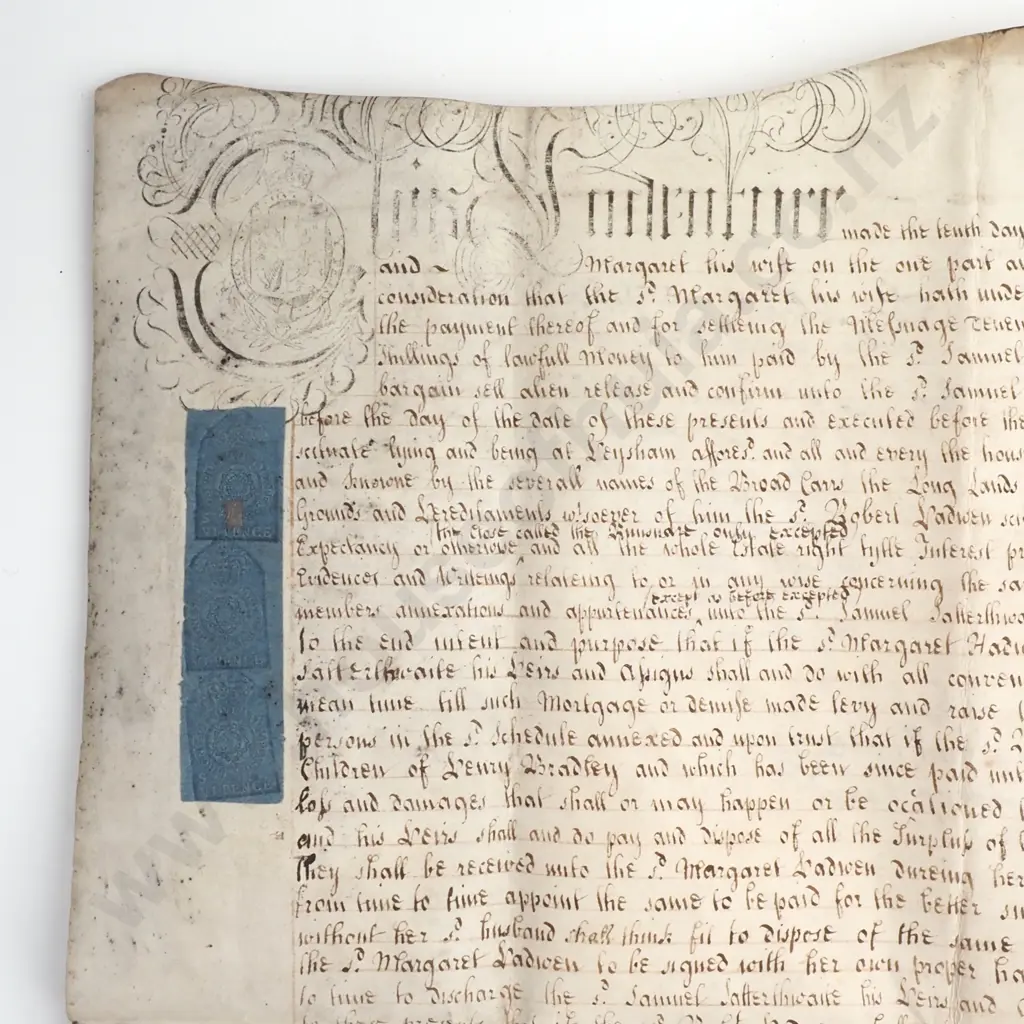 This Indenture made the tenth day
and Margaret his wife on the one part
consideration that the sd. Margaret his wife hath unde
the payment thereof and for selleing the Messuage Tenem
Shillings of lawfull Money to him paid by the sd. Samuel
bargain sell alien release and confirm unto the sd. Samuel
before the day of the date of these presents and executed before the
scituate lying and being at Heysham affores. and all and every the hous
and knowne by the severall names of the Broad Carrs the Long Lands
Grounds and Hereditaments w:soever of him the sd. Robert Hadwen
the close called the only excepted
Expectancy or otherwise and all the whole Estate right tytle Interest pr
Evidences and Writeings relateing to or in any wise concerning the sa
except as before excepted
members annexations and appurtenances unto the sd. Samuel Satterthwa
To the end intent and purpose that if the sd. Margaret Hadw
Satterthwaite his Heirs and Assigns shall and do with all conven
mean time till such Mortgage or demise made levy and raise
persons in the sd. Schedule annexed and upon trust that if the sd.
Children of Henry Bradley and which has been since paid unt
loss and damages that shall or may happen or be occãtioned
and his Heirs shall and do pay and dispose of all the Surpluss of
they shall be received unto the sd. Margaret Hadwen dureing her
from time to time appoint the same to be paid for the better su
without her sd. husband shall think fit to dispose of the same
the sd. Margaret Hadwen to be signed with her own proper ha
to time to discharge the sd. Samuel Satterthwaite his Heirs and